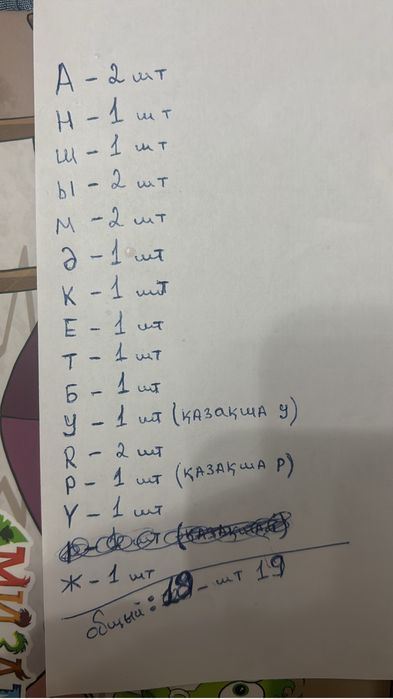 А - 2 шт
Н - 1 шт
Ш - 1 шт
Ы - 2 шт
М - 2 шт
Ә - 1 шт
К - 1 шт
Е - 1 шт
Т - 1 шт
Б - 1 шт
У - 1 шт (қазақша у)
R - 2 шт
Р - 1 шт (қазақша р)
Y - 1 шт
Ж - 1 шт
общый: 19 - шт 19